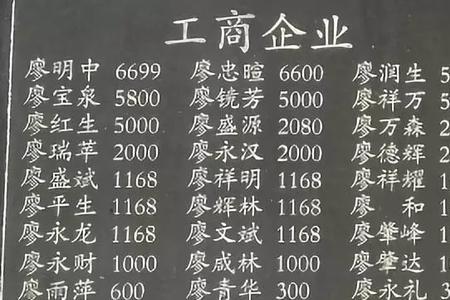 工商企业
廖明中 6699 廖忠暄 6600 廖润生 5
廖宝泉 5800 廖镜芳 5000 廖祥万 5
廖红生 5000 廖盛源 2080 廖万森 2
廖瑞苹 2000 廖永汉 2000 廖德辉 2
廖盛斌 1168 廖祥明 1168 廖祥耀 1
廖平生 1168 廖辉林 1168 廖 和 1
廖永龙 1168 廖文斌 1168 廖肇峰 1
廖永财 1000 廖咸林 1000 廖肇达 1
廖雨萍 600 廖青华 300 廖永礼 3